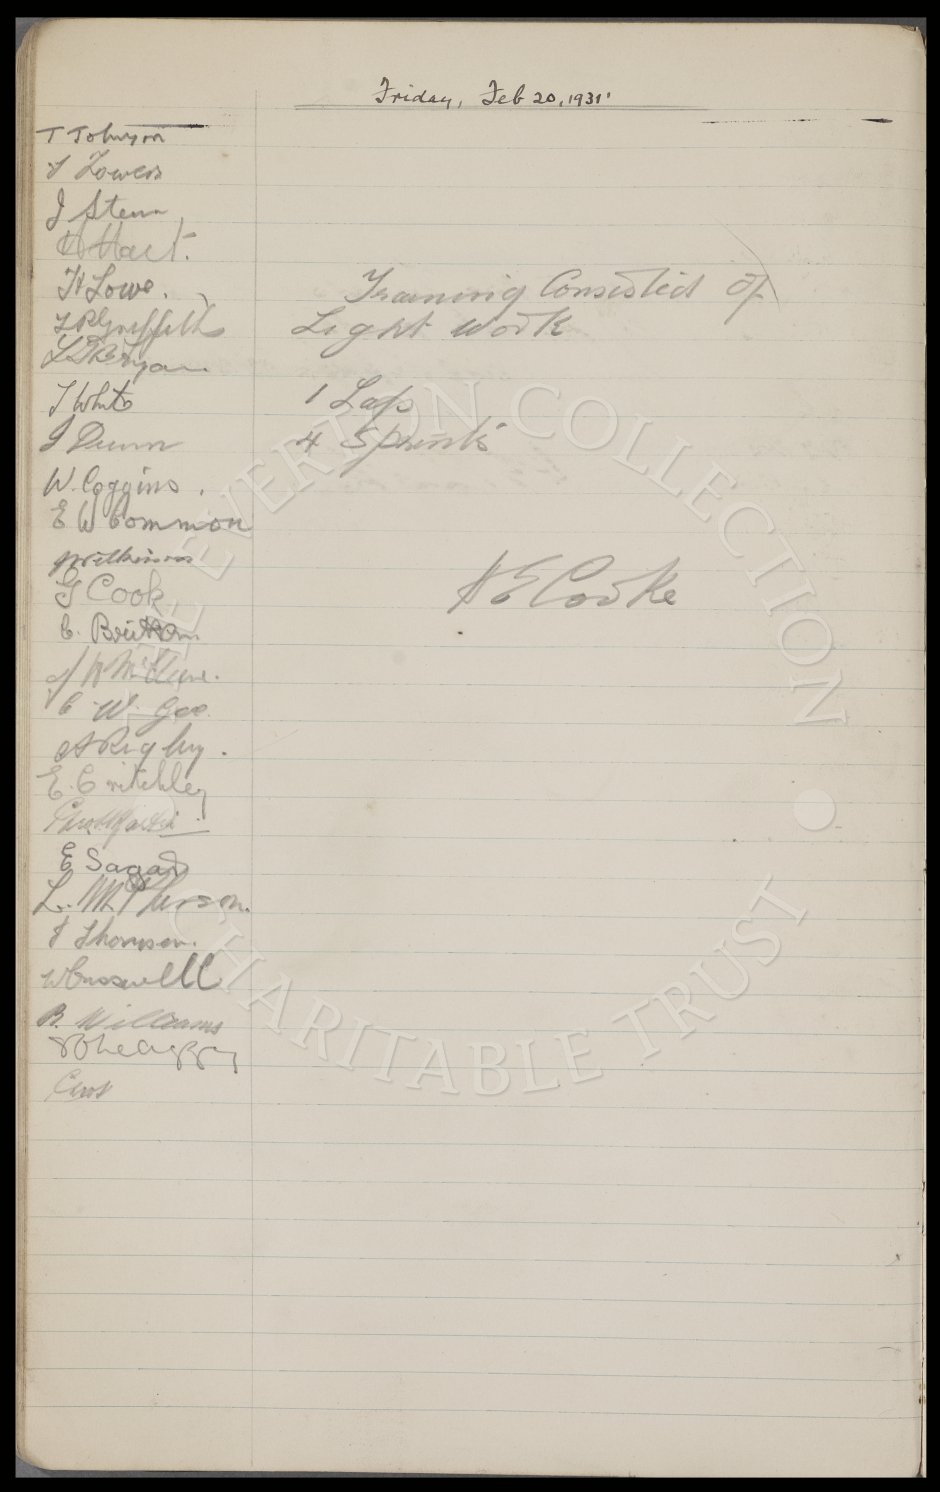 Friday, Feb 20, 1931.
T Johnson
T Towers
J Stein
H Hart.
H Lowe.
T P Griffiths
T White
J Dunn
W. Coggins.
E W Common
Wilkinson
G Cook
C. Britton
J W McClure.
C. W. Gee
A Rigby.
E. Critchley
E Sagar
L. McPherson.
J Thomson.
W Cresswell
B. Williams
Training Consisted of
Light work
1 Lap
4 Sprints
H E Cooke
THE EVERTON COLLECTION
CHARITABLE TRUST